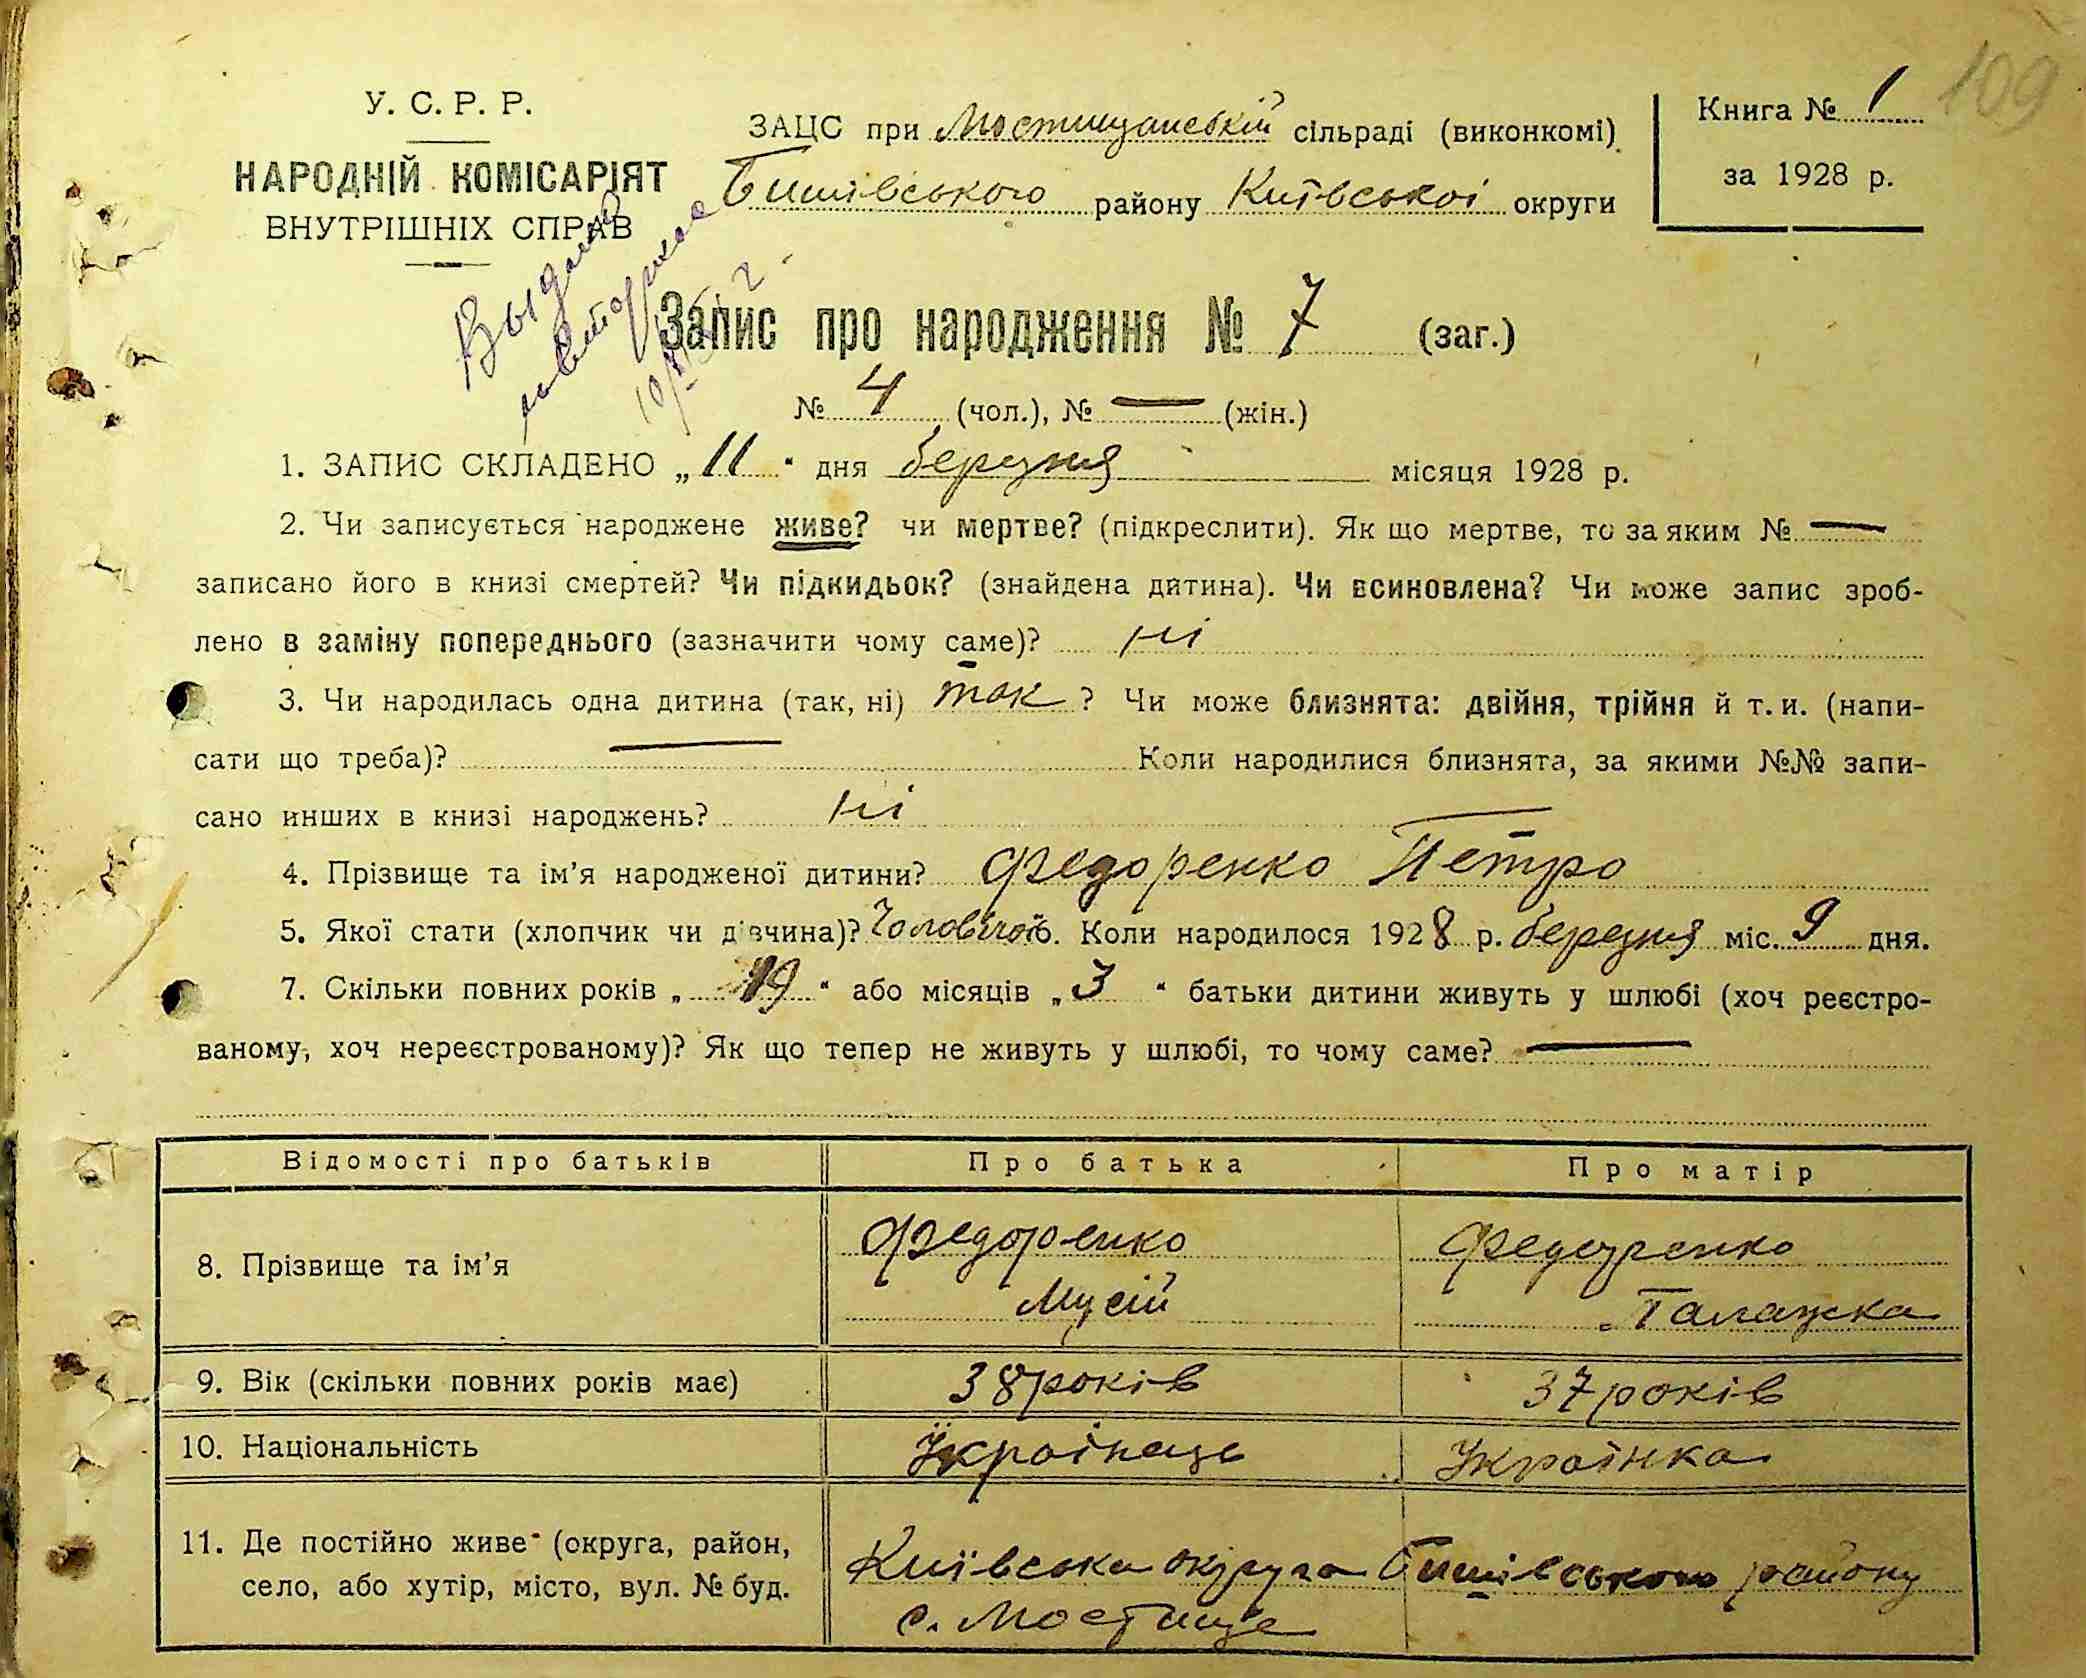 109
У. С. Р. Р.
НАРОДНІЙ КОМІСАРІЯТ
ВНУТРІШНІХ СПРАВ
ЗАЦС при Мостищанській сільраді (виконкомі)
Бишівського району Київської округи
Книга № 1
за 1928 р.
Выдано
повторное
Запис про народження № 7 (заг.)
№ 4 (чол.), № — (жін.)
1. ЗАПИС СКЛАДЕНО „ 11 “ дня березня місяця 1928 р.
2. Чи записується народжене живе? чи мертве? (підкреслити). Як що мертве, то за яким № —
записано його в книзі смертей? Чи підкидьок? (знайдена дитина). Чи всиновлена? Чи може запис зроб-
лено в заміну попереднього (зазначити чому саме)? ні
3. Чи народилась одна дитина (так, ні) так ? Чи може близнята: двійня, трійня й т. и. (напи-
сати що треба)? — Коли народилися близнята, за якими №№ запи-
сано инших в книзі народжень? ні
4. Прізвище та ім’я народженої дитини? Федоренко Петро
5. Якої стати (хлопчик чи дівчина)? Чоловічої 6. Коли народилося 1928 р. березня міс. 9 дня.
7. Скільки повних років „ 19 “ або місяців „ 3 “ батьки дитини живуть у шлюбі (хоч реєстро-
ваному, хоч нереєстрованому)? Як що тепер не живуть у шлюбі, то чому саме? —
Відомості про батьків Про батька Про матір
8. Прізвище та ім’я Федоренко Федоренко
Мусій Галажка
9. Вік (скільки повних років має) 38 років 37 років
10. Національність Українець Українка
11. Де постійно живе (округа, район, Київська округа Бишівського району
село, або хутір, місто, вул. № буд. с. Мостище